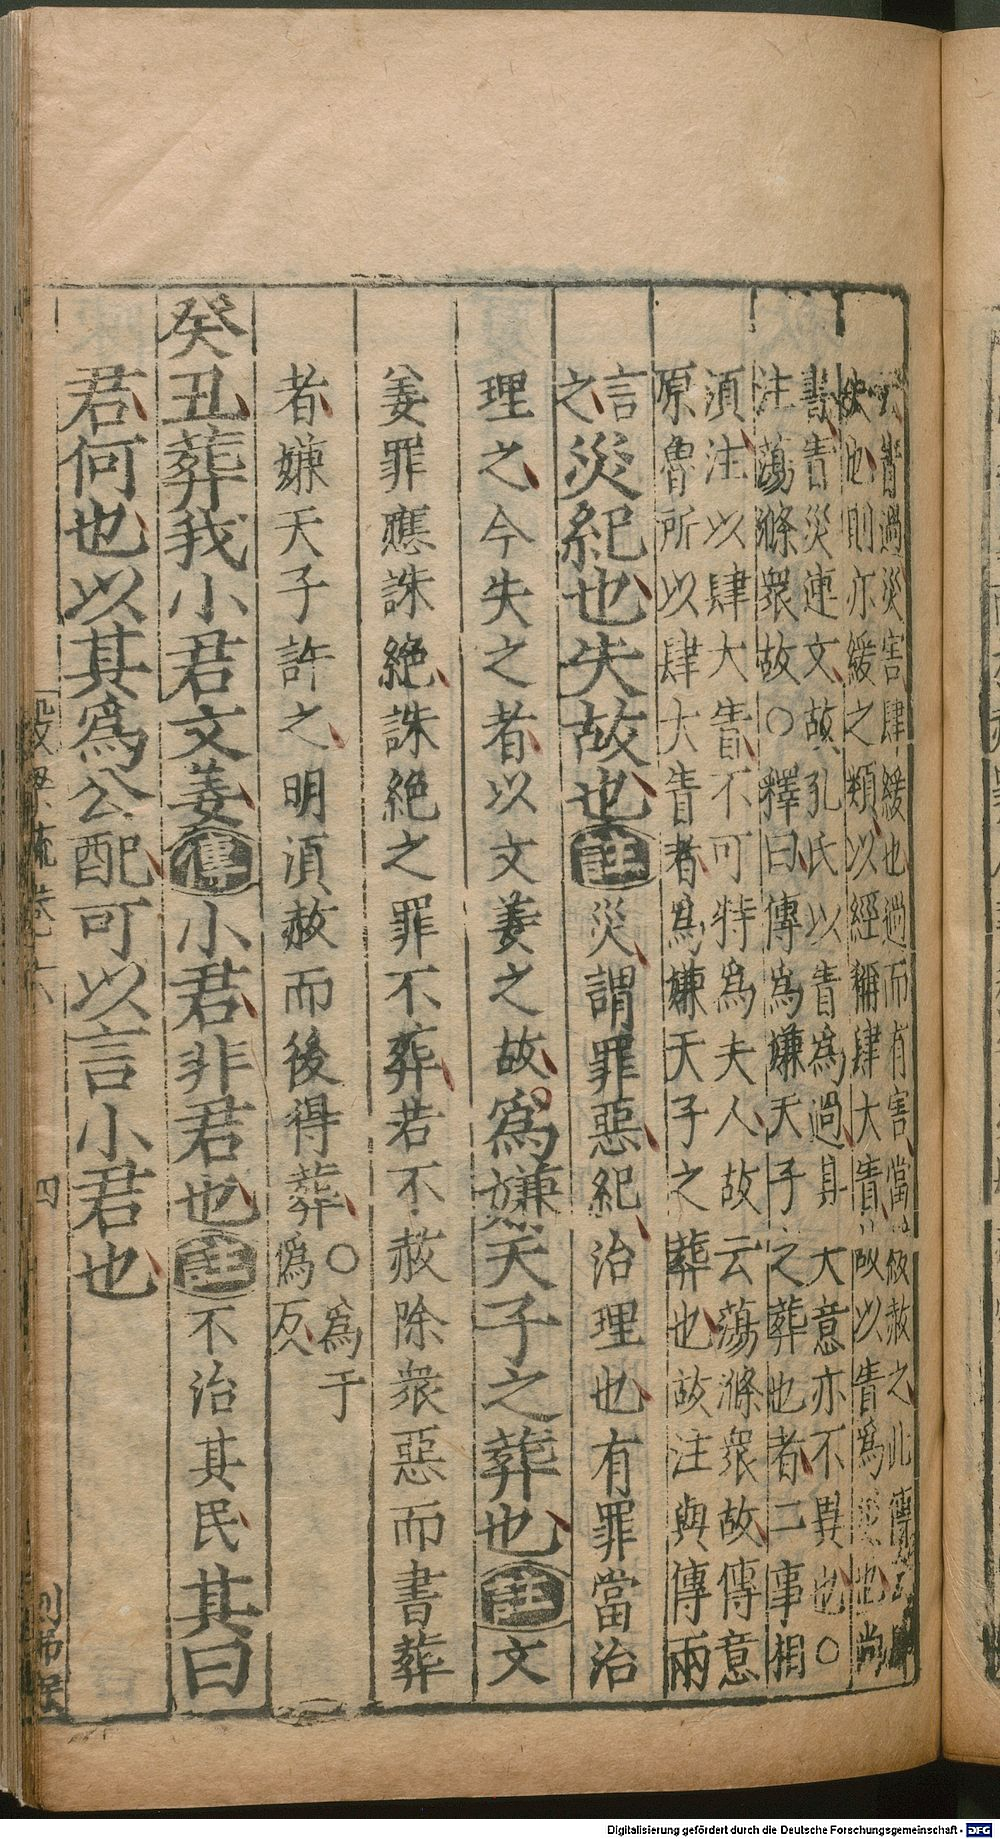 眚過災害肆緩也過而有害當緩赦之此傳
缺也則亦緩之類以經稱肆大眚以眚爲災也尚
書眚災連文故孔氏以眚爲過其大意亦不異也○
注蕩滌衆故○釋曰傳爲嫌天子之葬也者二事相
須注以肆大眚不可特爲夫人故云蕩滌衆故傳意
原魯所以肆大眚者為嫌天子之葬也故注與傳兩
言
之
災紀也失故也註災謂罪惡紀治理也有罪當治
理之今失之者以文姜之故爲嫌天子之葬也註文
姜罪應誅絶誅絶之罪不葬若不赦除衆惡而書葬
者嫌天子許之明須赦而後得葬○爲于
僞反
癸丑葬我小君文姜傳小君非君也註不治其民其曰
君何也以其爲公配可以言小君也
四
Digitalisierung gefördert durch die Deutsche Forschungsgemeinschaft - DFG